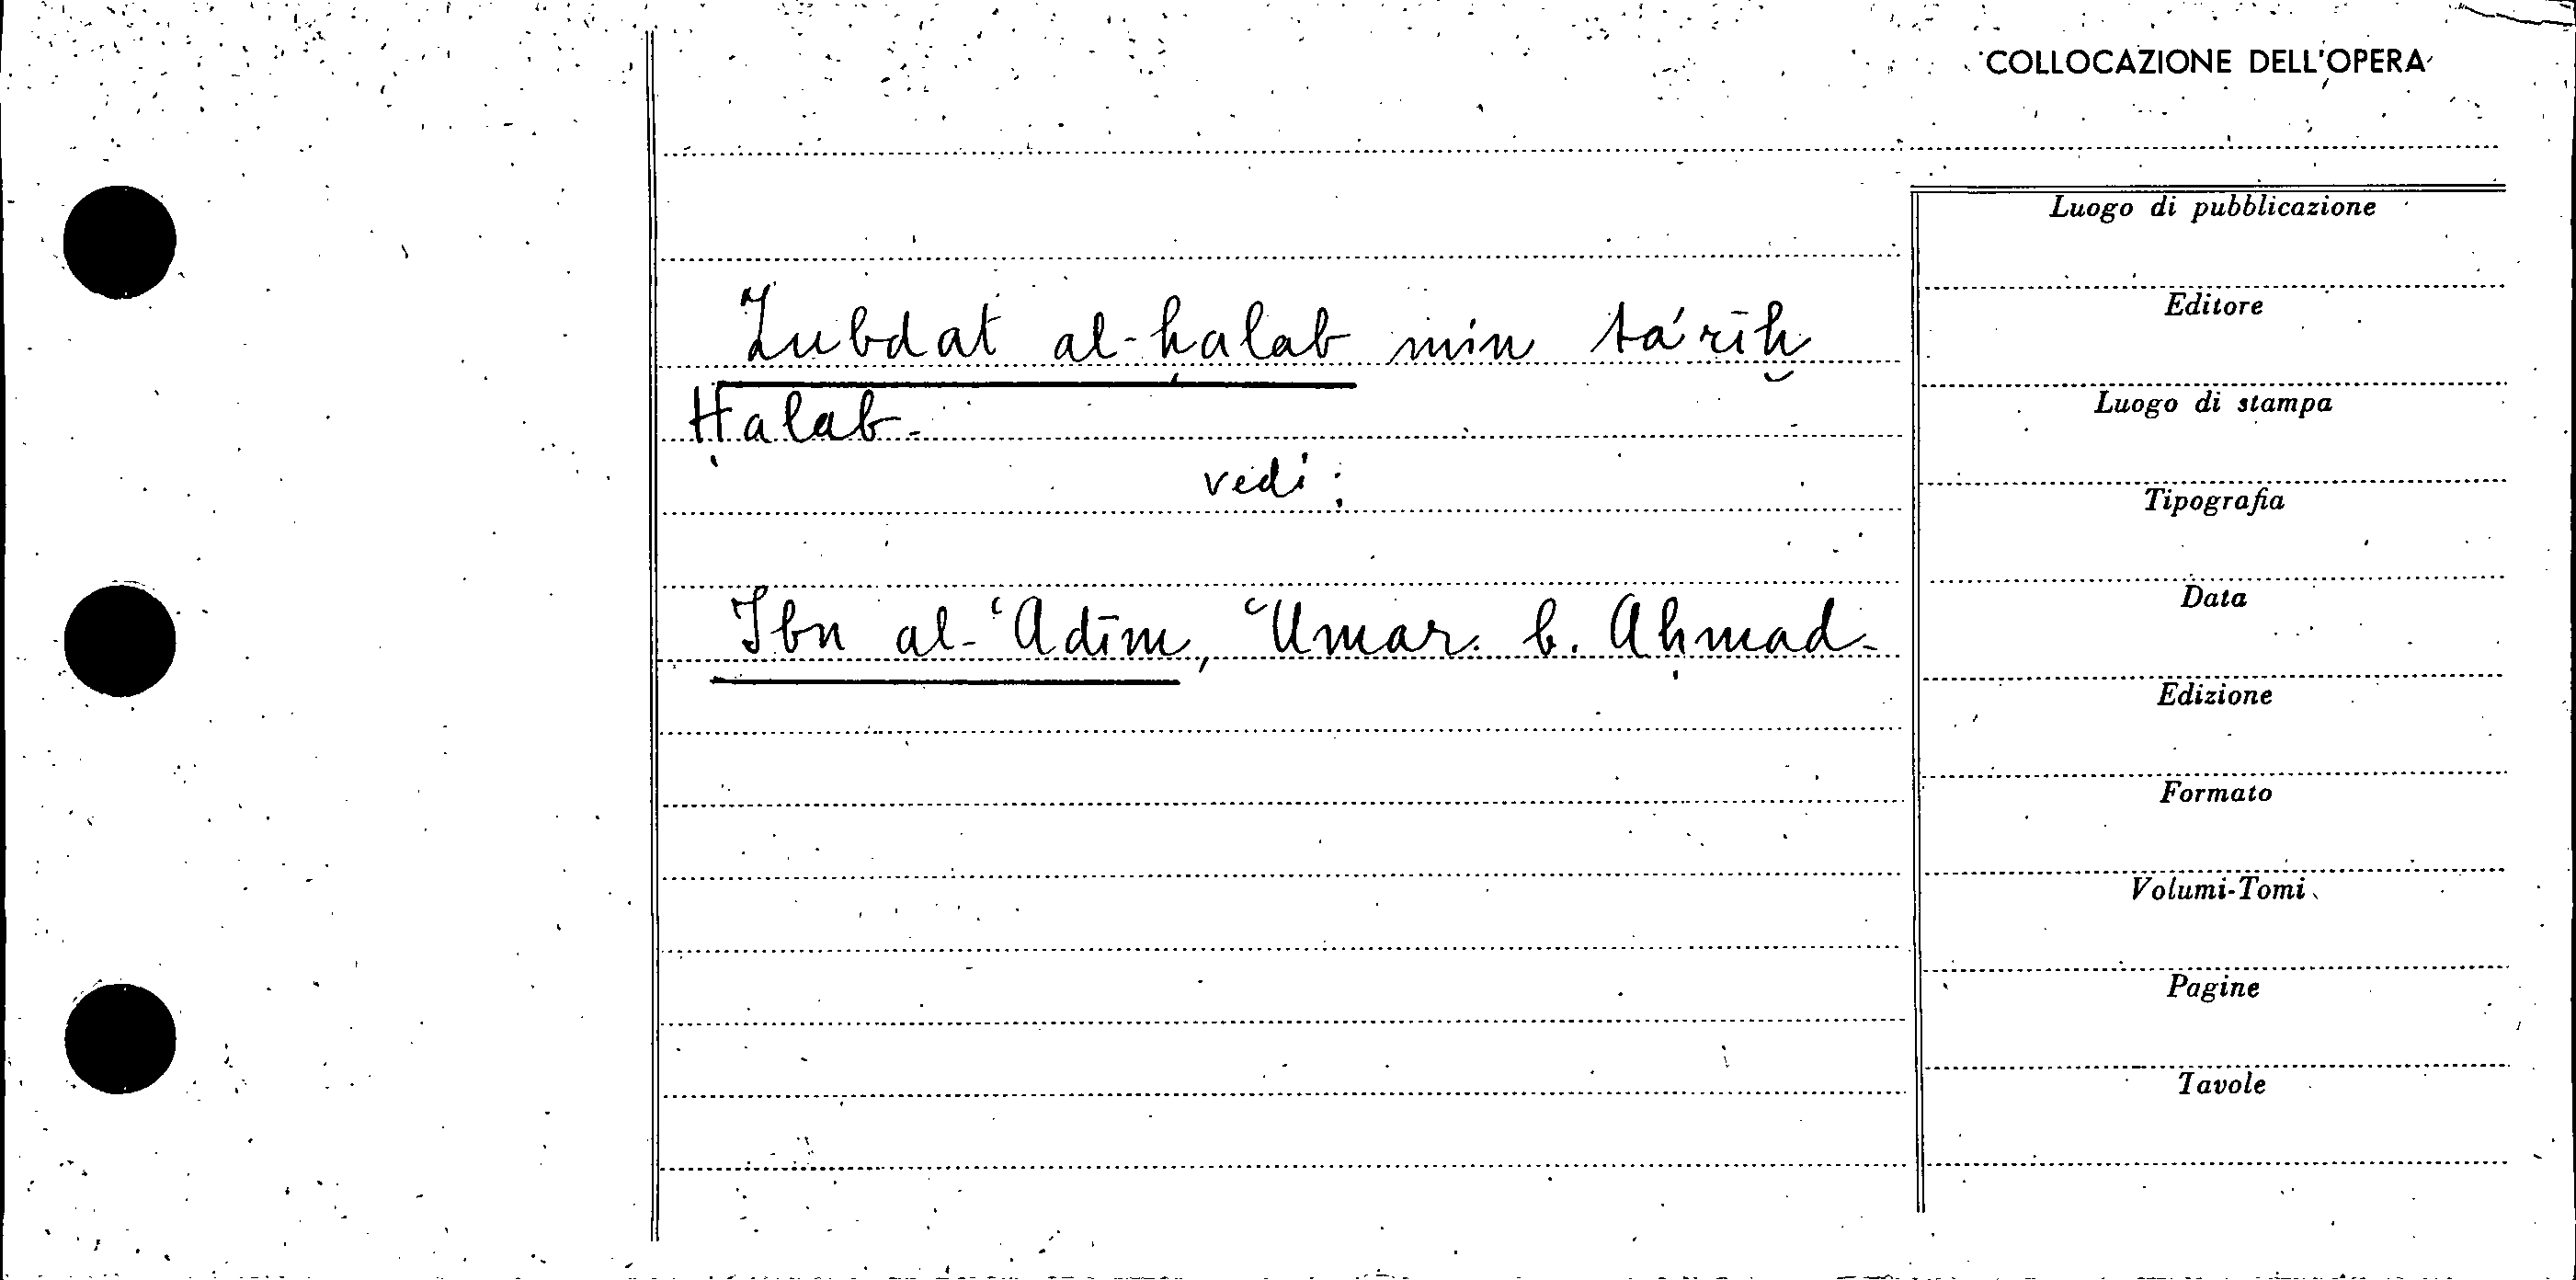 COLLOCAZIONE DELL'OPERA
Zubdat al-ḥalab min ta'rīḫ
Ḥalab-
vedi:
Ibn al-ʿAdīm, ʿUmar b. Aḥmad-
Luogo di pubblicazione
Editore
Luogo di stampa
Tipografia
Data
Edizione
Formato
Volumi-Tomi
Pagine
Tavole